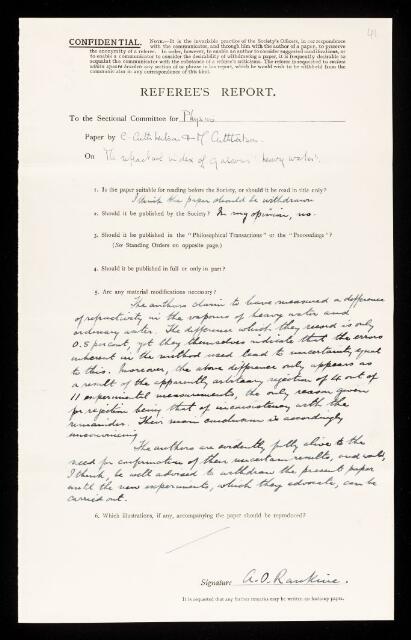 41
CONFIDENTIAL. NOTE.—It is the invariable practice of the Society's Officers, in correspondence
with the communicator, and through him with the author of a paper, to preserve
the anonymity of a referee. In order, however, to enable an author to consider suggested modifications, or
to enable a communicator to consider the desirability of withdrawing a paper, it is frequently desirable to
acquaint the communicator with the substance of a referee's criticisms. The referee is requested to enclose
within square brackets any section of or phrase in his report, which he would wish to be withheld from the
communicator in any correspondence of this kind.
REFEREE'S REPORT.
To the Sectional Committee for Physics
Paper by C Cuthbertson & M Cuthbertson.
On The refractive index of gaseous "heavy water".
1. Is the paper suitable for reading before the Society, or should it be read in title only?
I think the paper should be withdrawn
2. Should it be published by the Society? In my opinion, no.
3. Should it be published in the "Philosophical Transactions" or the "Proceedings"?
(See Standing Orders on opposite page.)
4. Should it be published in full or only in part?
5. Are any material modifications necessary?
The authors claim to have measured a difference
of refractivity in the vapours of heavy water and
ordinary water. The difference which they record is only
0.5 percent, yet they themselves indicate that the errors
inherent in the method used lead to uncertainty equal
to this. Moreover, the above difference only appears as
a result of the apparently arbitrary rejection of 4 out of
11 experimental measurements, the only reason given
for rejection being that of inconsistency with the
remainder. Their main conclusion is accordingly
unconvincing.
The authors are evidently fully alive to the
need for confirmation of their uncertain results, and would,
I think, be well advised to withdraw the present paper
until the new experiments, which they advocate, can be
carried out.
6. Which illustrations, if any, accompanying the paper should be reproduced?
Signature A.O. Rankine.
It is requested that any further remarks may be written on foolscap paper.